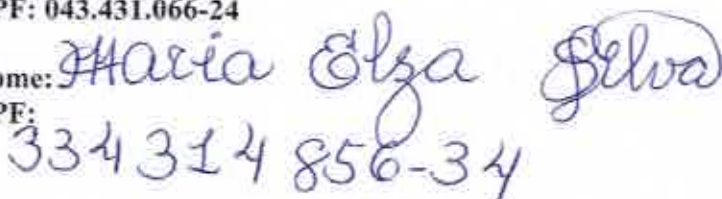 PF: 043.431.066-24
ome: Maria Elza Silva
PF:
334314856-34